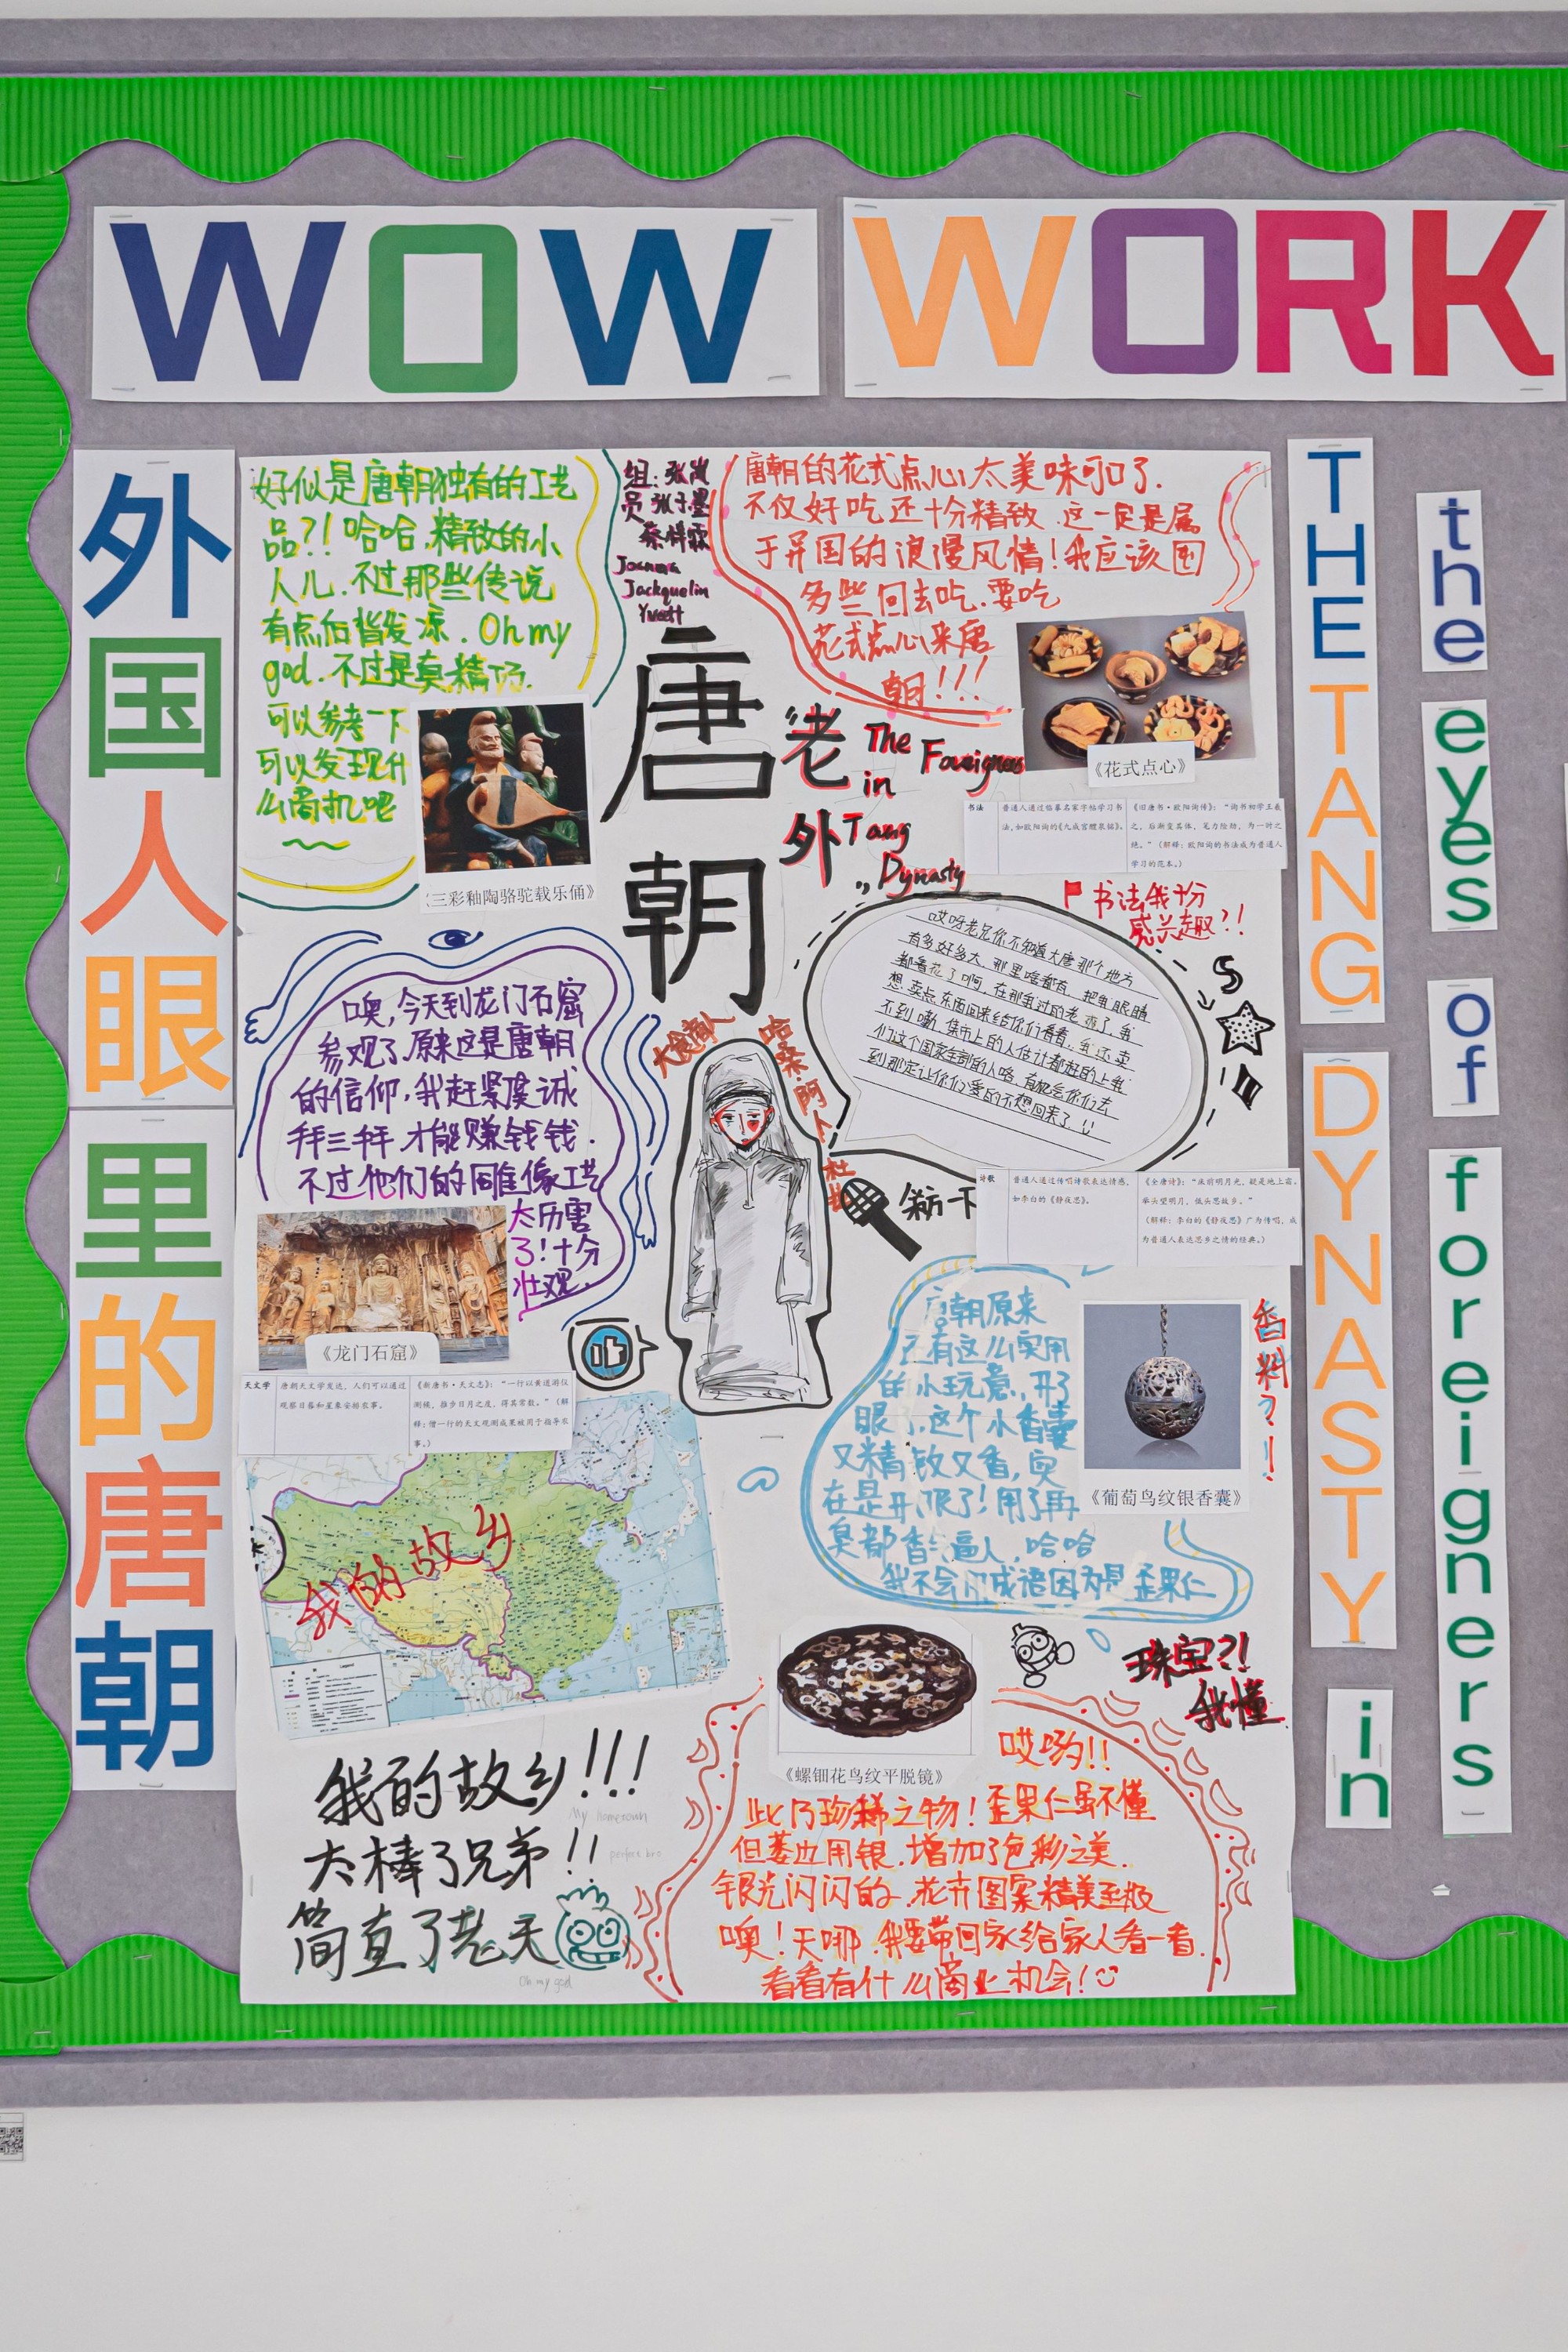 WOW WORK
外国人眼里的唐朝
THE TANG DYNASTY in
the eyes of foreigners
好似是唐朝独有的工艺
品?! 哈哈,精致的小
人儿.不过那些传说
有点后背发凉.Oh my
god.不过是真精巧.
可以参考一下
可以发现什
么商机吧
《三彩釉陶骆驼载乐俑》
组:张
员 张子墨
蔡梓霖
Joanna
Jackquelin
Yvett
唐朝的花式点心太美味可口了.
不仅好吃还十分精致.这一定是属
于异国的浪漫风情!我应该囤
多些回去吃.要吃
花式点心来唐
朝!!!
《花式点心》
唐朝
老外
The Foreigners
in
Tang
Dynasty
书法
普通人通过临摹名家字帖学习书
法,如欧阳询的《九成宫醴泉铭》。
《旧唐书·欧阳询传》:“询书初学王羲
之,后渐变其体,笔力险劲,为一时之
绝。”(解释:欧阳询的书法成为普通人
学习的范本。)
书法我十分
感兴趣?!
哎呀老兄你不知道大唐那个地方
有多好多大.那里啥都有.把我眼睛
都看花了啊.在那我过的老 了.我
想卖点东西回来给你们看看.我还卖
不到嘞.集市上的人估计都赶的上我
们这个国家全部的人咯.有机会你们去
到那定让你们爱的不想回来了.
大食商人
哈桑·阿卜杜拉
采访一下
诗歌
普通人通过传唱诗歌表达情感,
如李白的《静夜思》。
《全唐诗》:“床前明月光,疑是地上霜。
举头望明月,低头思故乡。”
(解释:李白的《静夜思》广为传唱,成
为普通人表达思乡之情的经典。)
噢,今天到龙门石窟
参观了.原来这是唐朝
的信仰,我赶紧虔诚
拜三拜.才能赚钱钱.
不过他们的雕像工艺
太历害
了!十分
壮观.
《龙门石窟》
天文学
唐朝天文学发达,人们可以通过
观察日晷和星象安排农事。
《新唐书·天文志》:“一行以黄道游仪
测候,推步日月之度,得其常数。”(解
释:僧一行的天文观测成果被用于指导农
事。)
我的故乡
唐朝原来
还有这么实用
的小玩意,开了
眼了,这个小香囊
又精致又香,实
在是开眼了!用了再
臭都香气逼人,哈哈
我不会用成语因为是歪果仁
《葡萄鸟纹银香囊》
香料?!
珠宝?!
我懂
《螺钿花鸟纹平脱镜》
我的故乡!!!
My hometown
太棒了兄弟!!
perfect bro
简直了老天
Oh my god
哎哟!!
此乃珍稀之物!歪果仁虽不懂
但 用银.增加了色彩之美.
银光闪闪的.花卉图案精美至极
噢!天哪.我要带回家给家人看一看.
看看有什么商业机会!